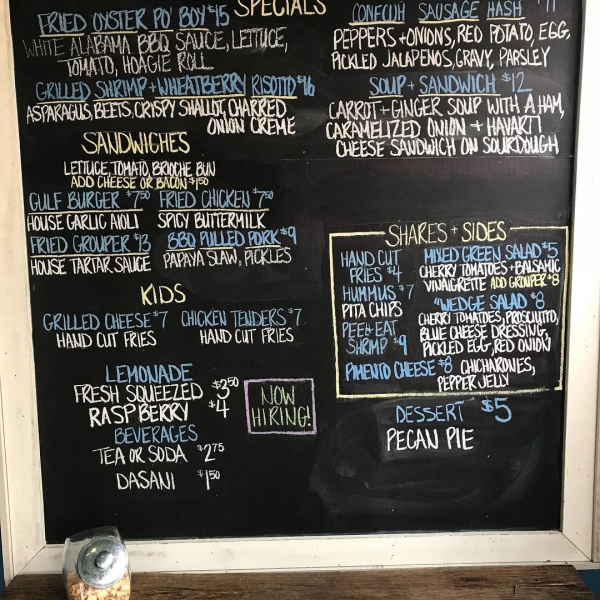 SPECIALS
FRIED OYSTER PO' BOY $15
WHITE ALABAMA BBQ SAUCE, LETTUCE,
TOMATO, HOAGIE ROLL
GRILLED SHRIMP + WHEATBERRY RISOTTO $16
ASPARAGUS, BEETS, CRISPY SHALLOT, CHARRED
ONION CREME
CONECUH SAUSAGE HASH
PEPPERS + ONIONS, RED POTATO, EGG,
PICKLED JALAPENOS, GRAVY, PARSLEY
SOUP + SANDWICH $12
CARROT + GINGER SOUP WITH A HAM,
CARAMELIZED ONION + HAVARTI
CHEESE SANDWICH ON SOURDOUGH
SANDWICHES
LETTUCE, TOMATO, BRIOCHE BUN
ADD CHEESE OR BACON $1.50
GULF BURGER $7.50
HOUSE GARLIC AIOLI
FRIED CHICKEN $7.50
SPICY BUTTERMILK
FRIED GROUPER $13
HOUSE TARTAR SAUCE
BBQ PULLED PORK $9
PAPAYA SLAW, PICKLES
KIDS
GRILLED CHEESE $7
HAND CUT FRIES
CHICKEN TENDERS $7
HAND CUT FRIES
LEMONADE
FRESH SQUEEZED $3.50
RASPBERRY $4
BEVERAGES
TEA OR SODA $2.75
DASANI $1.50
NOW
HIRING!
SHARES + SIDES
HAND CUT
FRIES $4
HUMMUS $7
PITA CHIPS
PEEL + EAT
SHRIMP $9
PIMENTO CHEESE $8 CHICHARONES,
PEPPER JELLY
MIXED GREEN SALAD $5
CHERRY TOMATOES + BALSAMIC
VINAIGRETTE ADD GROUPER $8
"WEDGE SALAD $8
CHERRY TOMATOES, PROSCIUTTO,
BLUE CHEESE DRESSING,
PICKLED EGG, RED ONION
DESSERT $5
PECAN PIE